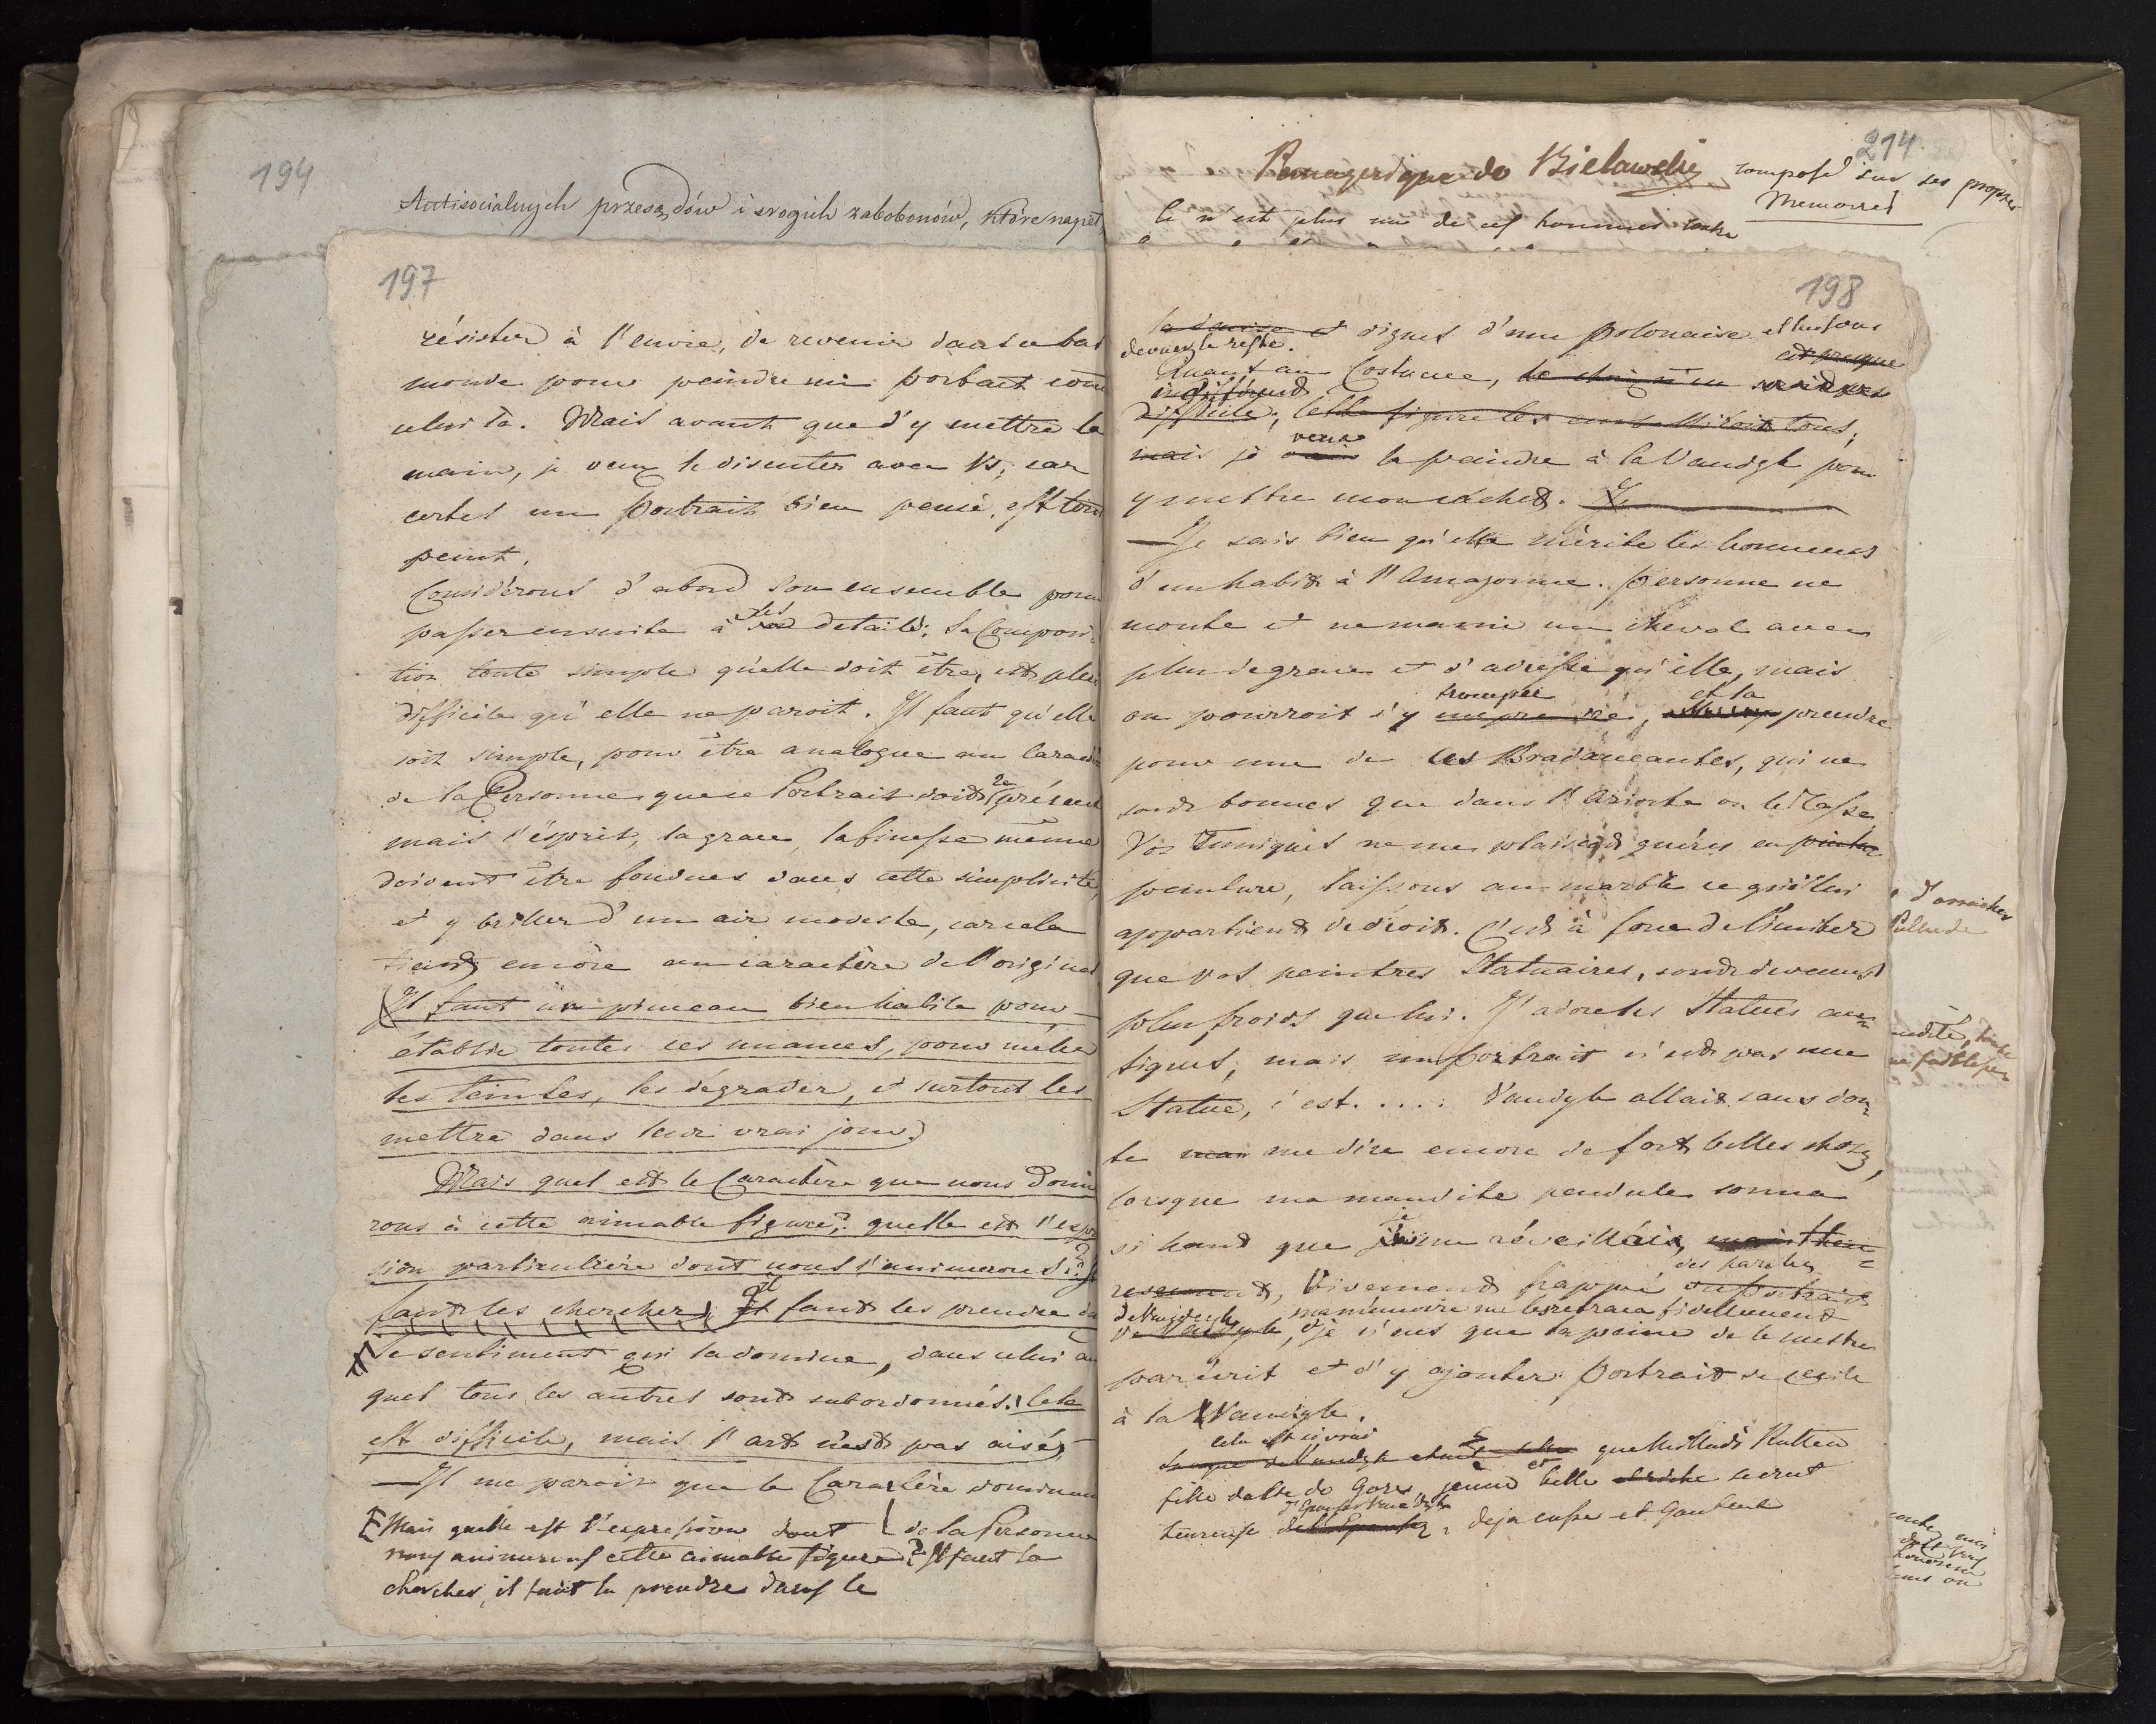 194
Antisocialnych przesądów i srogich zabobonów, które napeł
197
résister à l'envie, de revenir dans ce bas
monde pour peindre un portrait com
celui là. Mais avant que d'y mettre la
main, je veux le discuter avec Vs, car
certes un portrait bien pensé, est tout
peint.
Considérons d'abord son ensemble pour
passer ensuite à ses details: la Composi-
tion toute simple qu'elle doit être, est plus
difficile qu'elle ne paroit. Il faut qu'elle
soit simple, pour être analogue au Caract
de la Personne que ce Portrait doit représent
mais l'ésprit, la grace, la finesse même
doivent être fondues dans cette simplicité,
et y briller d'un air modeste, car cela
tient encore au caractère de l'original
Il faut un pinceau bien habile pour
établir toutes ces nuances, pour meler
les teintes, les dégrader, et surtout les
mettre dans leur vrai jour)
Mais quel est le Caractère que nous donne
rons à cette aimable figure? quelle est l'expre
sion particulière dont nous l'animerons? Il
faut les chercher, il faut les prendre da
le sentiment qui la domine, dans celui au
quel tous les autres sont subordonnés. Cela
est difficile, mais l'art n'est pas aisé,
— Il me parait que le Caractère dominan
de la Personne
Mais quelle est l'expression dont
nous animerons cette aimable figure? Il faut la
chercher, il faut la prendre dans le
214.
de Bielawski composé sur ses propres
Memoires
Ce n'est plus un de ces hommes
198
et dignes d'une Polonaise et lui
devnez le reste.
Quant au Costume, le choix n'en seroit pas
est presque
indifférent
difficile, Cette figure les embelliroit tous;
mais je veux la peindre à la Vandyk pour
y mettre mon cachet.
— Je sais bien qu'elle mérite les honneurs
d'un habit à l'Amazonne. Personne ne
monte et ne manie un cheval avec
plus de grace et d'adresse qu'elle, mais
on pourroit s'y tromper méprendre, et la prendre
pour une de ces Bradamantes, qui ne
sont bonnes que dans l'Arioste ou le Tasse
Vos Tuniques ne me plaisent guéres en
peinture, laissons au marbre ce qui lui
appartient de droit. C'est à force de l'imiter
que vos peintres Statuaires, sont devenus
plus froids que lui. J'adore les Statues an-
tiques, mais un Portrait n'est pas une
Statue, c'est..... Vandyk allait sans dou-
te me dire encore de fort belles choses,
lorsque ma maudite pendule sonna
si haut que je me réveillais, mais heu
resement, Vivement frappé des paroles du portrait
de Vandyk, ma mémoire me les retraca fidellement
de Vandyk, et je n'eus que la peine de le mettre
par écrit et d'y ajouter: Portrait de Cecile
à la Vandyk.
cela est si vrai
que Milladi Rutten
fille de de Gores, jeune et belle se crut
heureuse d'épouser Vandyk, deja cassé et Gouteux
d'arracher
nudité,